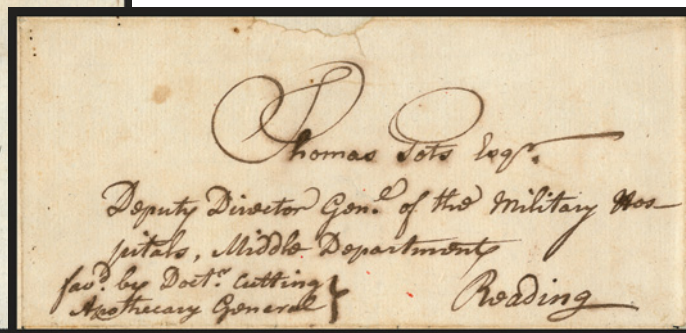 Thomas Pots Esqr.
Deputy Director Genl. of the Military Hos-
pitals, Middle Department
favd. by Doctr. Cutting
Apothecary General } Reading